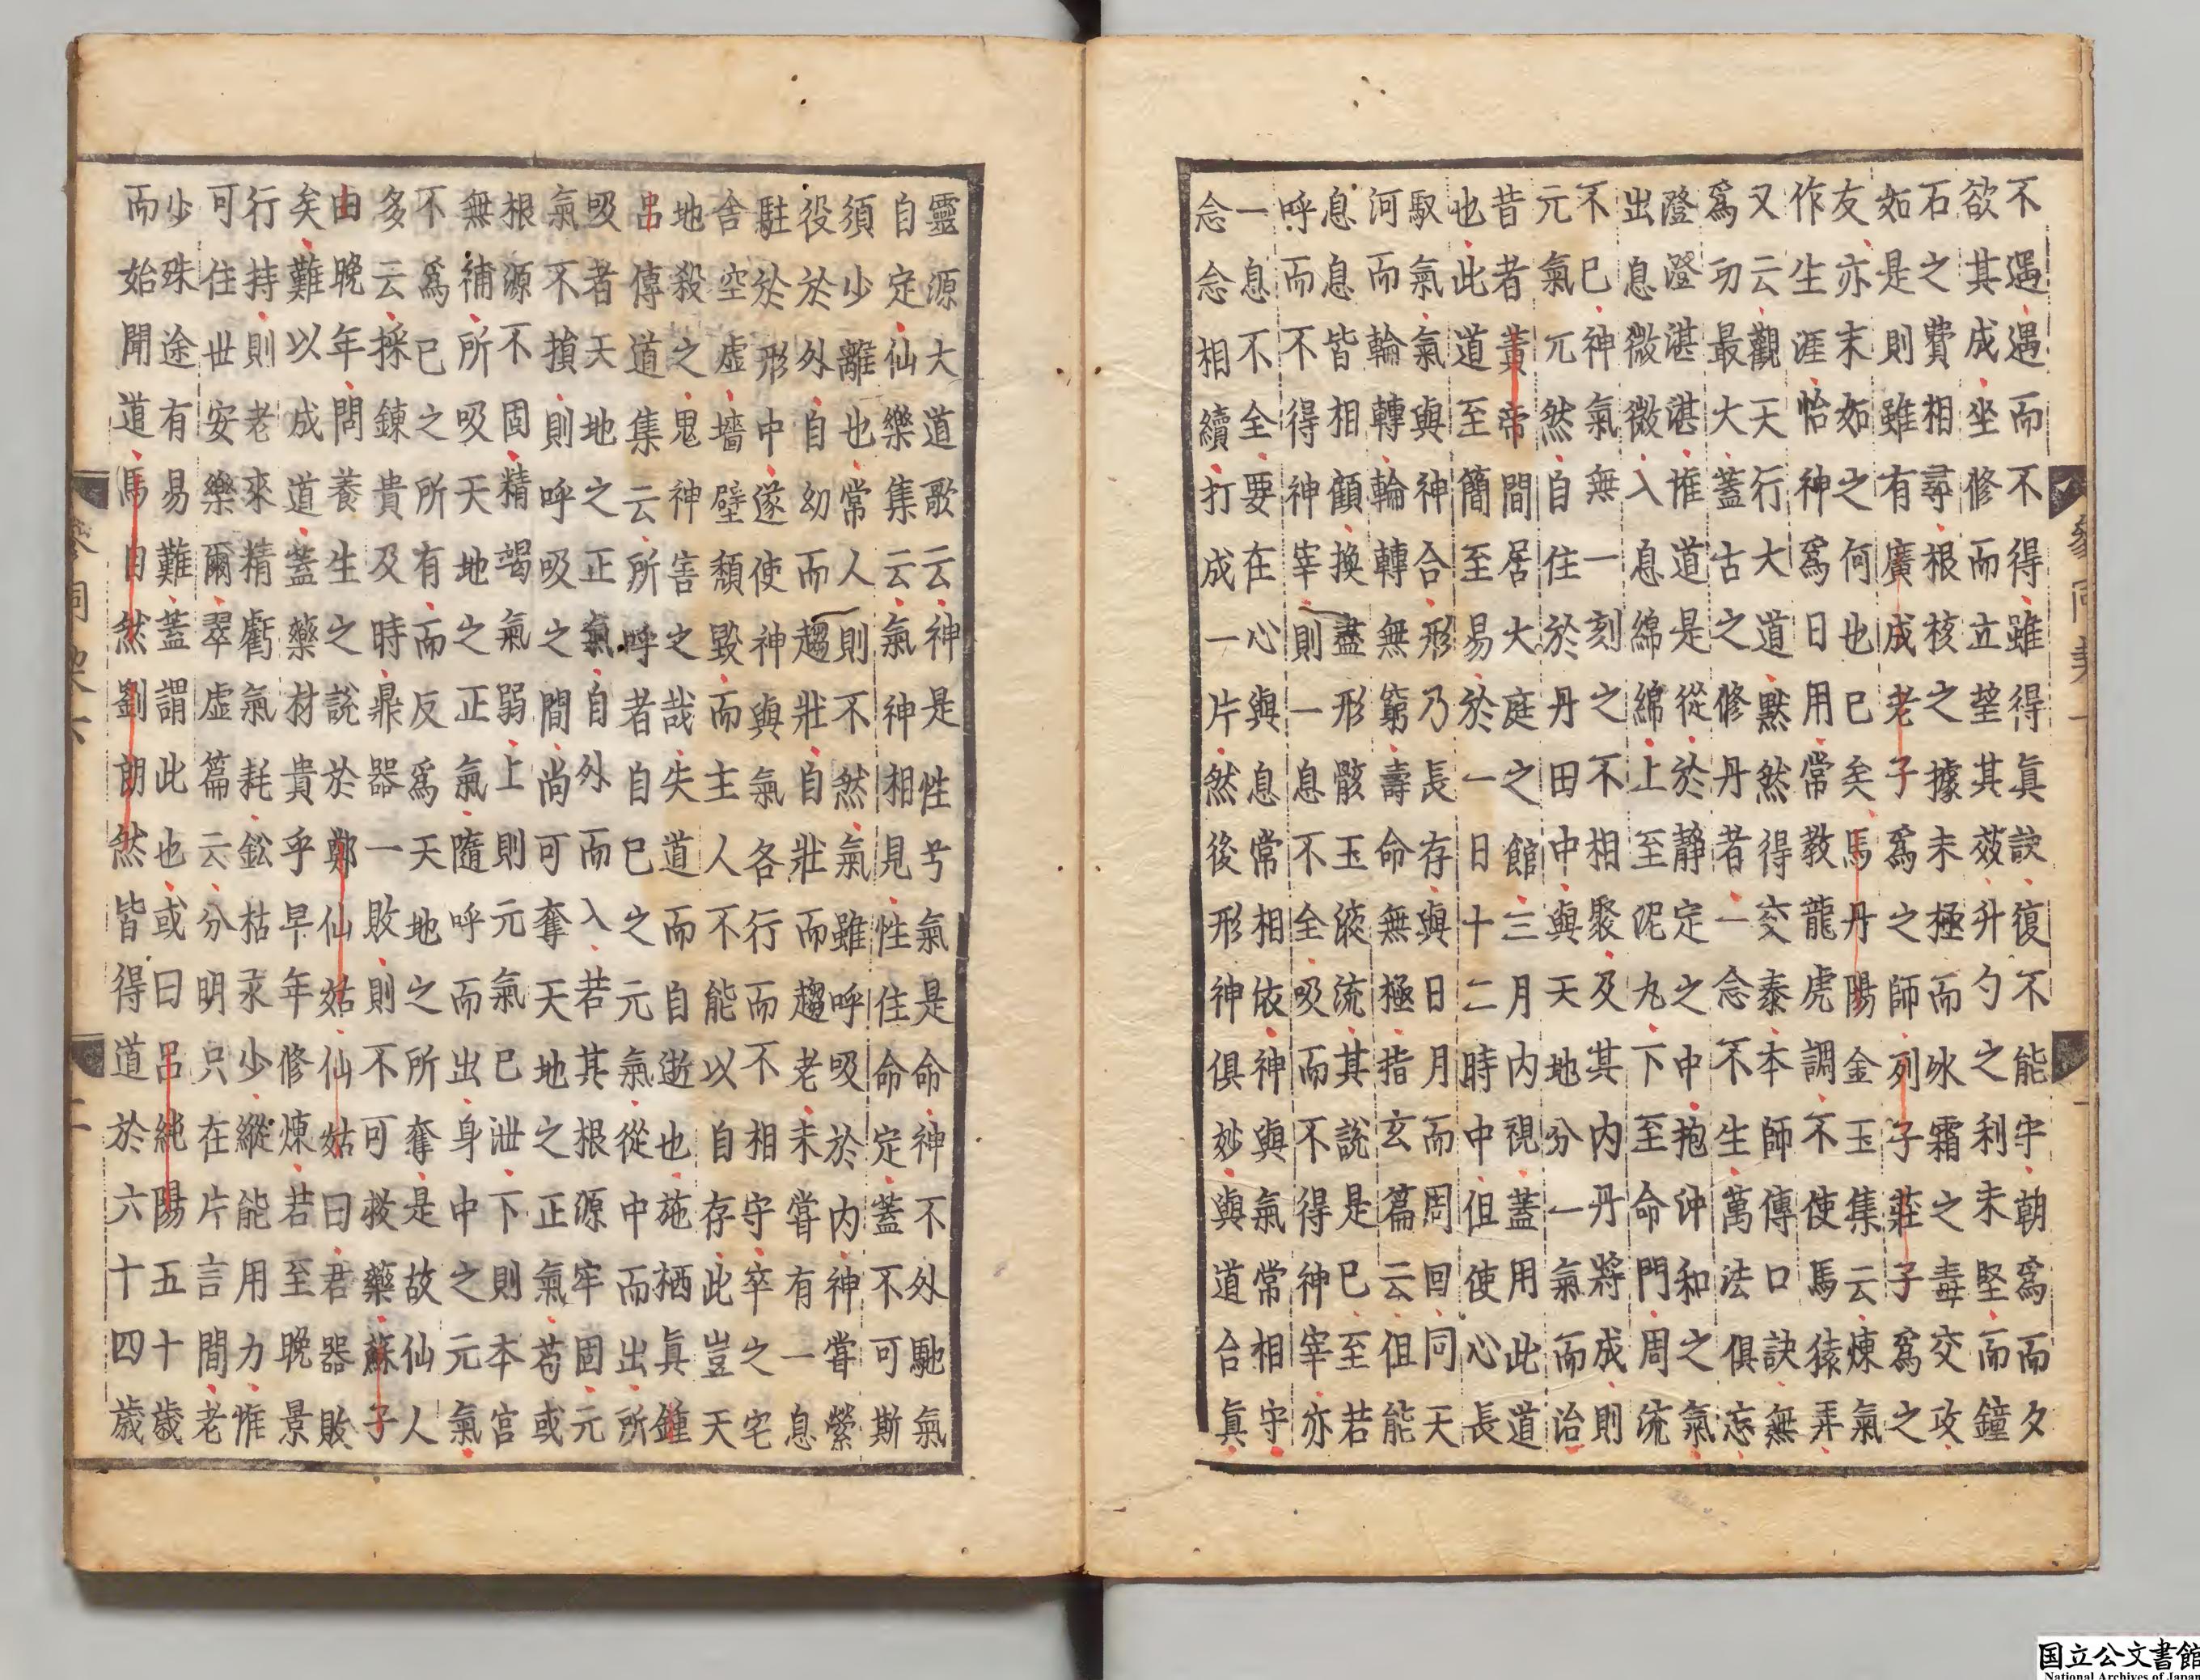 不遇遇而不得雖得眞訣復不能守朝爲而夕
欲其成坐修而立望其效升勺之利未堅而鐘
石之費相尋根核之據未極而氷霜之毒交攻
如是則雖有廣成老子爲之師列子莊子爲之
友亦末如之何也已矣馬丹陽金玉集云煉氣
作生涯怡神爲日用常教龍虎調不使馬猿弄
又云觀天行大道默然得交泰本師傳口訣無
爲功最大蓋古之修丹者一念不生萬法俱忘
澄澄湛湛惟道是從於静定之中抱冲和之氣
出息微微入息綿綿上至泥丸下至命門周流
不已神氣無一刻之不相聚及其内丹將成則
元氣元然自住於丹田中與天地分一氣而治
昔者黄帝間居大庭之館三月内視蓋用此道
也此道至簡至易於一日十二時中但使心長
馭氣氣與神合形乃長存與日月而周回同天
河而輪轉輪轉無窮壽命無極指玄篇云但能
息息皆相顧換盡形骸玉液流其說是已至若
呼而不得神宰則一息不全吸而不得神宰亦
一息不全要在心與息常相依神與氣常相守
念念相續打成一片然後形神俱妙與道合眞
參同契
靈源大道歌云神是性兮氣是命神不外馳氣
自定仙樂集云氣神相見性住命定蓋不可斯
須少離也常人則不然氣雖呼吸於内神嘗縈
役於外自幼而趨壯自壯而趨老未嘗有一息
駐於形中遂使神與氣各行而不相守卒之宅
舍空虛墻壁頽毀而主人不能以自存此豈天
地殺之鬼神害之哉失道而自逝也施栖眞鍾
呂傳道集云所呼者自己之元氣從中而出所
吸者天地之正氣自外而入若其根源牢固元
氣不損則呼吸之間尚可奪天地之正氣苟或
根源不固精竭氣弱上則元氣已泄下則本宮
無補所吸天地之正氣隨呼而出身中之元氣
不爲已之所有而反爲天地之所奪是故仙人
多云採鍊貴及時鼎器一敗則不可救藥蘇子
由晩年問養生之說於鄭仙姑仙姑曰君器敗
矣難以成道蓋藥材貴乎早年修煉若至晩景
行持則老來精虧氣耗鈆枯汞少縱能用力惟
可住世安樂爾翠虛篇云分明只在片言間老
少殊途有易難蓋謂此也或曰呂純陽五十歲
而始聞道馬自然劉朗然皆得道於六十四歲
国立公文書館
National Archives of Japan